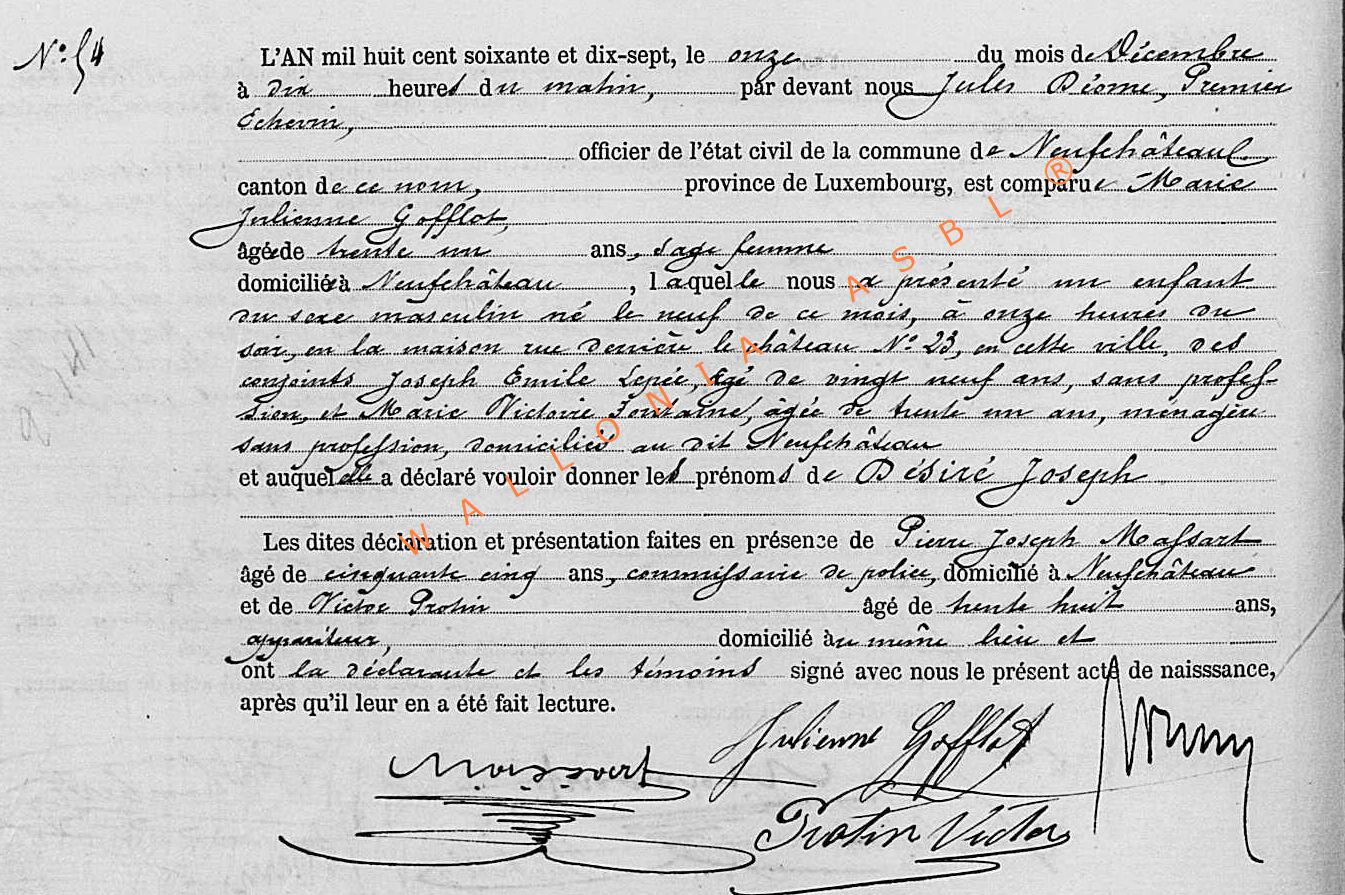 N° 54
L'AN mil huit cent soixante et dix-sept, le onze du mois de Décembre
à dix heures du matin, par devant nous Jules Déome, Premier
Echevin,
officier de l'état civil de la commune de Neufchâteau,
canton de ce nom, province de Luxembourg, est comparue Marie
Julienne Gofflot,
âgée de trente un ans, sage femme
domiciliée à Neufchâteau, laquelle nous a présenté un enfant
du sexe masculin né le neuf de ce mois, à onze heures du
soir, en la maison rue derrière le château N° 23, en cette ville, des
conjoints Joseph Emile Lepée, âgé de vingt neuf ans, sans profes-
sion, et Marie Victoire Fontaine, âgée de trente un ans, ménagère
sans profession, domiciliés au dit Neufchâteau
et auquel elle a déclaré vouloir donner les prénoms de Désiré Joseph
Les dites déclaration et présentation faites en présence de Pierre Joseph Massart
âgé de cinquante cinq ans, commissaire de police, domicilié à Neufchâteau
et de Victor Protin âgé de trente huit ans,
appariteur, domicilié au même lieu et
ont la déclarante et les témoins signé avec nous le présent acte de naisssance,
après qu'il leur en a été fait lecture.
Julienne Gofflot
Massart
Protin Victor
WALLONIA ASBL ®